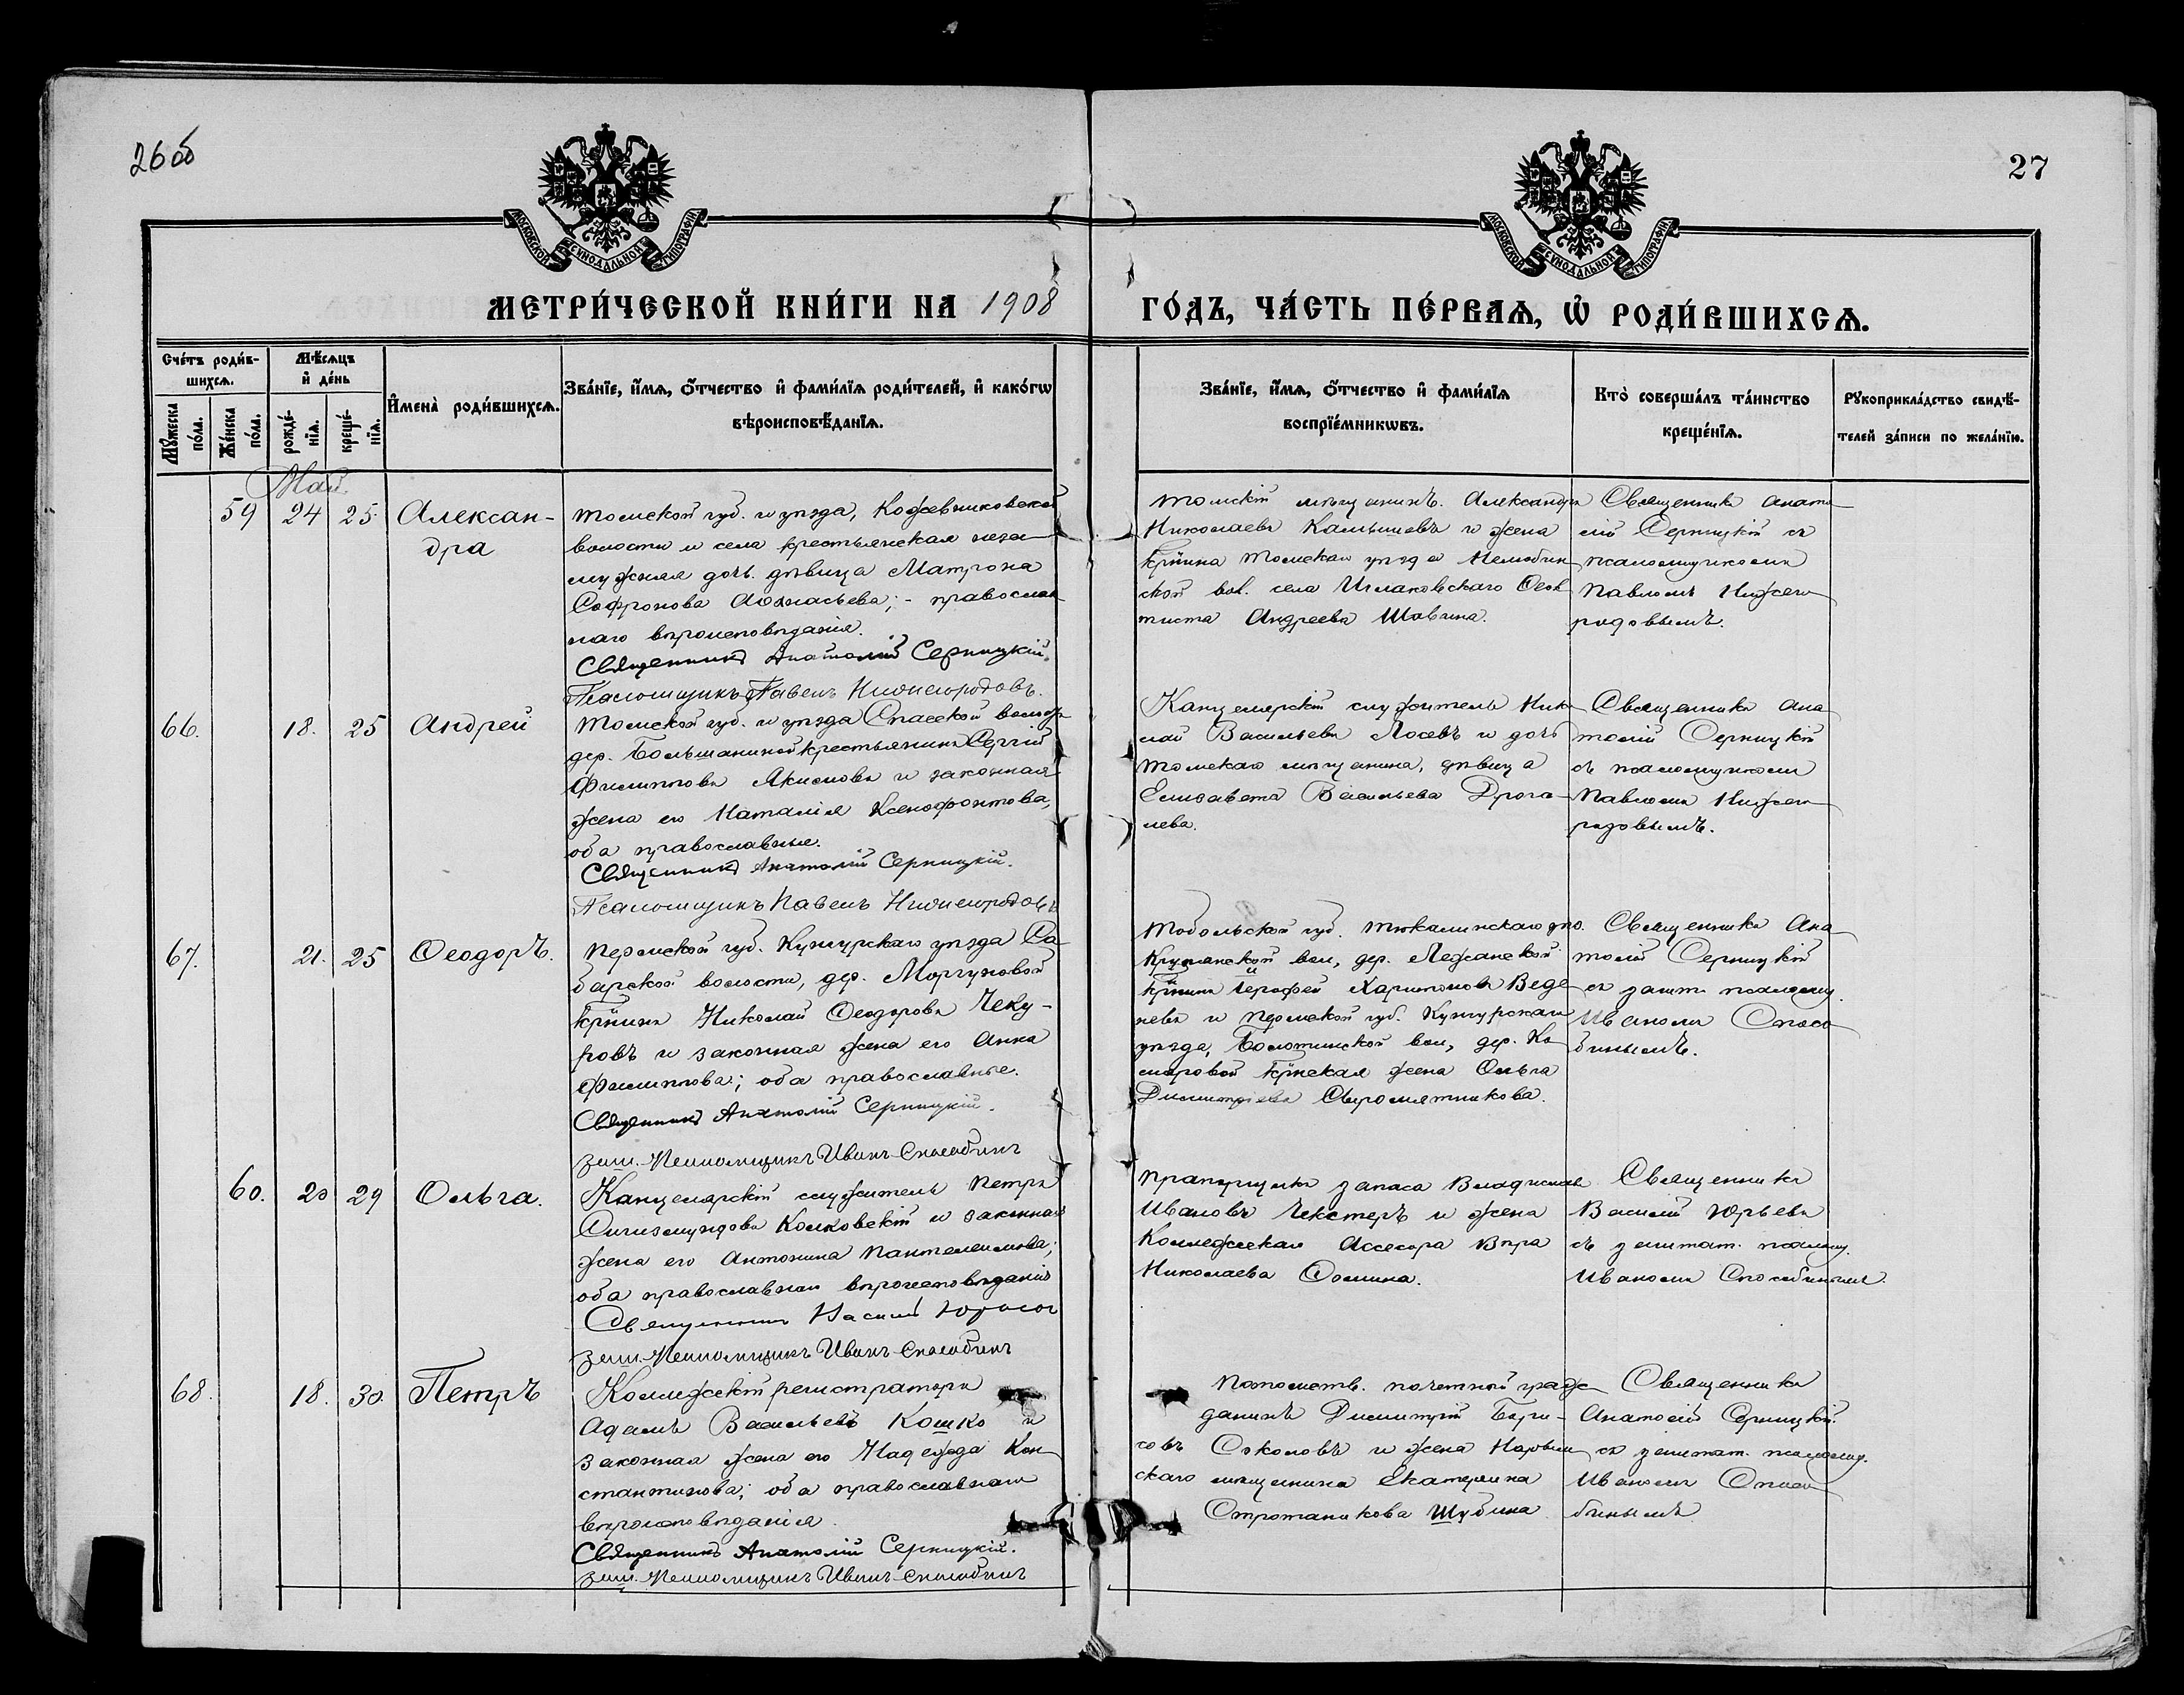 26об
27
МОСКОВСКОЙ СѴНОДАЛЬНОЙ ТИПОГРАФІИ.
МОСКОВСКОЙ СѴНОДАЛЬНОЙ ТИПОГРАФІИ.
МЕТРИ́ЧЕСКОЙ КНИ́ГИ НА 1908
ГО́ДЪ, ЧА́СТЬ ПЕ́РВАѦ, Ѽ РОДИ́ВШИХСѦ.
Сче́тъ роди́в-
шихсѧ.
Мѣ́сѧцъ
и҆ де́нь
Мꙋ́жеска
по́ла.
Же́нска
по́ла.
рожде́-
нїѧ.
креще́-
нїѧ.
И҆мена̀ роди́вшихсѧ.
Зва́нїе, и҆́мѧ, ѻ҆́тчество и҆ фами́лїѧ роди́телей, и҆ како́гѡ
вѣроисповѣ́данїѧ.
Зва́нїе, и҆́мѧ, ѻ҆́тчество и҆ фами́лїѧ
воспрїе́мникѡвъ.
Кто̀ соверша́лъ та́инство
креще́нїѧ.
Рꙋкоприкла́дство свидѣ́-
телей за́писи по жела́нїю.
Май
59 24 25 Алексан-
дра
Томской губ. и уѣзда, Кожевниковской
волости и села крестьянская неза-
мужняя дочь дѣвица Матрона
Софронова Аѳанасьева; - православ-
наго вѣроисповѣданія.
Священникъ Анатолій Серницкій.
Псаломщикъ Павелъ Нижегородовъ.
Томскій мѣщанинъ Александръ
Николаевъ Камышевъ и жена
кр̃нина Томскаго уѣзда Нелюбин
ской вол. села Иглаковскаго Ѳеок
тиста Андреева Шавнина.
Священникъ Анато
лій Серницкій съ
псаломщикомъ
Павломъ Нижего
родовымъ.
66. 18. 25 Андрей
Томской губ. и уѣзда Спасской волости
дер. Большаниной крестьянинъ Сергій
Филипповъ Акимовъ и законная
жена его Наталія Ксенофонтова,
оба православные.
Священникъ Анатолій Серницкій.
Псаломщикъ Павелъ Нижегородовъ
Канцелярскій служитель Нико
лай Васильевъ Лосевъ и дочь
томскаго мѣщанина, дѣвица
Елизавета Васильева Драга-
лева.
Священникъ Ана
толій Серницкій
съ псаломщикомъ
Павломъ Нижего
родовымъ.
67. 21. 25 Ѳеодоръ.
Пермской губ. Кунгурскаго уѣзда Са-
барской волости, дер. Моргуновой
кр̃нинъ Николай Ѳеодоровъ Чеку-
ровъ и законная жена его Анна
Филиппова; оба православные.
Священникъ Анатолій Серницкій.
заш. Псаломщикъ Иванъ Способинъ
Тобольской губ. Тюкалинскаго уѣ.
Крутинской вол, дер. Лежанской
кр̃нинъ Іерофей Харитоновъ Веде-
невъ и Пермской губ. Кунгурскаго
уѣзда, Болотинской вол, дер. Ко
маровой кр̃нская жена Ольга
Димитріева Сыромятникова.
Священникъ Ана
толій Серницкій
съ зашт. псаломщ.
Иваномъ Спосо
бинымъ.
60. 20 29 Ольга.
Канцелярскій служитель Петръ
Сигизмундовъ Колковскій и законная
жена его Антонина Пантелеимова;
оба православнаго вѣроисповѣданія
Священникъ Василій Юрьевъ
заш. Псаломщикъ Иванъ Способинъ
Прапорщикъ запаса Владиславъ
Ивановъ Чекстеръ и жена
Коллежскаго Ассесора Вѣра
Николаева Ѳомина.
Священникъ
Василій Юрьевъ
съ заштат. псаломщ.
Иваномъ Способинымъ.
68. 18. 30. Петръ
Коллежскій регистраторъ
Адамъ Васильевъ Кошко и
законная жена его Надежда Кон
стантинова; оба православнаго
вѣроисповѣданія.
Священникъ Анатолій Серницкій.
заш. Псаломщикъ Иванъ Способинъ
Потомств. почетный граж
данинъ Димитрій Бори-
совъ Соколовъ и жена Нарым
скаго мѣщанина Екатерина
Шубина
Священникъ
Анатолій Серницкій
съ заштат. псаломщ.
Иваномъ Спосо
бинымъ